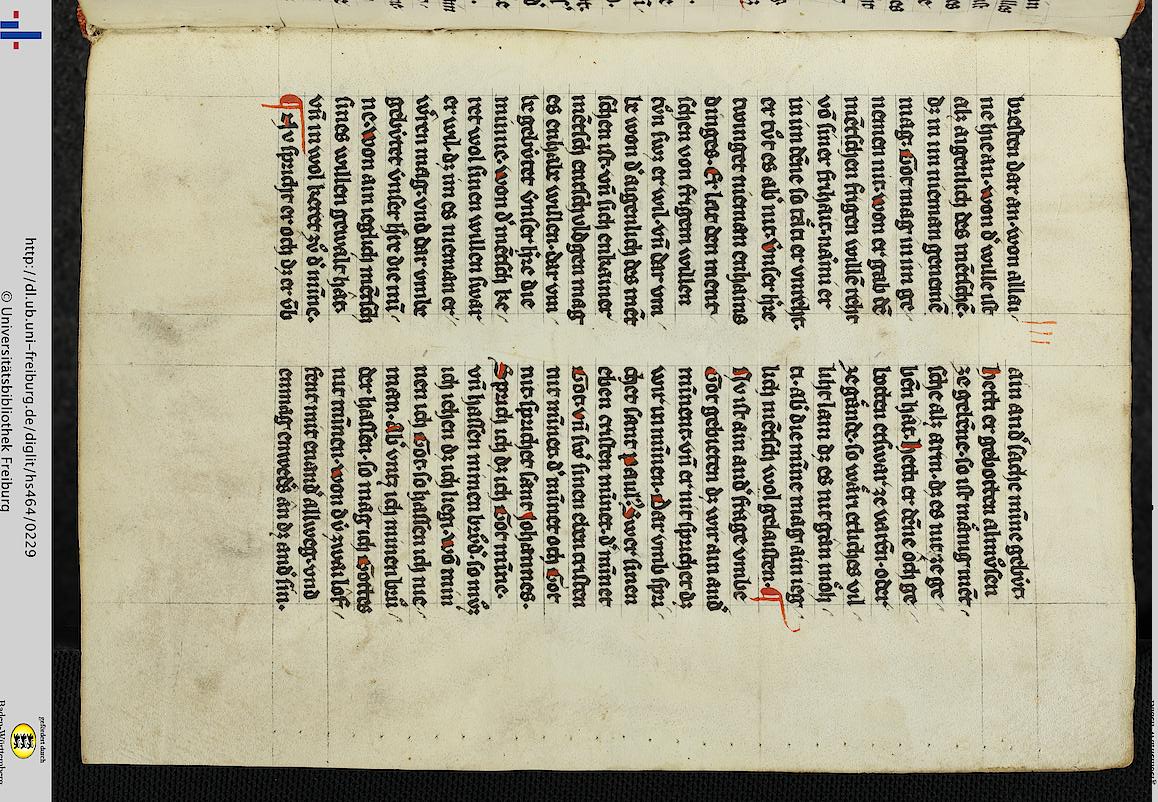 bresten dar an. won allai
ne hie an. won d' wille ist
alz aigenlich des mētsche.
dz in im nieman genemē
mag. Got mag in im ge
nemen nit. won er gab dē
mētschen frigen willē reht
vō siner frihait. naimi er
im in dēne so tāt er vnreht.
er tůt es ab' nit. Vnser h're
twinget nieman enhains
dinges. Er lat den ment
schen von frigem willen
tůn swz er wil. vn̄ dar vm
be won d' aigenlich des mēt
schen ist. vn̄ sich enkainer
mētsch entschuldgen mag
es enhabe willen. dar vm
be gebütet vnser h're die
minne. won d' mētsch ke
ret wol sinen willen swar
er wil. dz im es nieman er
w'ren mag. vnd dar vmbe
gebütet vnser h're die mī
ne. won ain ieglich mētsch
sines willen gewalt hat.
vn̄ in wol keret zů d' mīne.
¶ Nv spricht er och dz er vb
ain and' sache minne gebüt.
hetti er gebotten almůsen
ze gebēne. so ist mānig mēt
sche alz arm. dz es nit ze ge
bēn hat. hetti er dēne och ge
botten etswar ze varēn. oder
ze gānde. so wār etliches vil
liht lam dz es nit gan mōh
ti. ab' die mīne mag ain ieg
lich mētsch wol gelaisten. ¶
Nv ist ain and' frage vmbe
Got gebieten dz wir ain and'
mīnent. vn̄ er nit sprichet dz
wir in minen. Dar vmb spri
chet sant paul9. Swer sinen
eben cristen minet. d' minet
Got. vn̄ sw' sinen eben cristen
nit minet. d' minet och Got
nit. sprichet sant Johannes.
Sprich ich dz ich Got mīne.
vn̄ hassen minen brůd'. so můz
ich iehen dz ich lieg. wō min
nen ich Got. so hassen ich nie
man. Alb' vntz ich minen brů
der hassen. so mag ich Gottes
nit minnen. won div zwai loff
fent mit enand' allweg. vnd
enmag entwed's ān dz and' sin.
http://dl.ub.uni-freiburg.de/diglit/hs464/0229
© Universitätsbibliothek Freiburg
gefördert durch